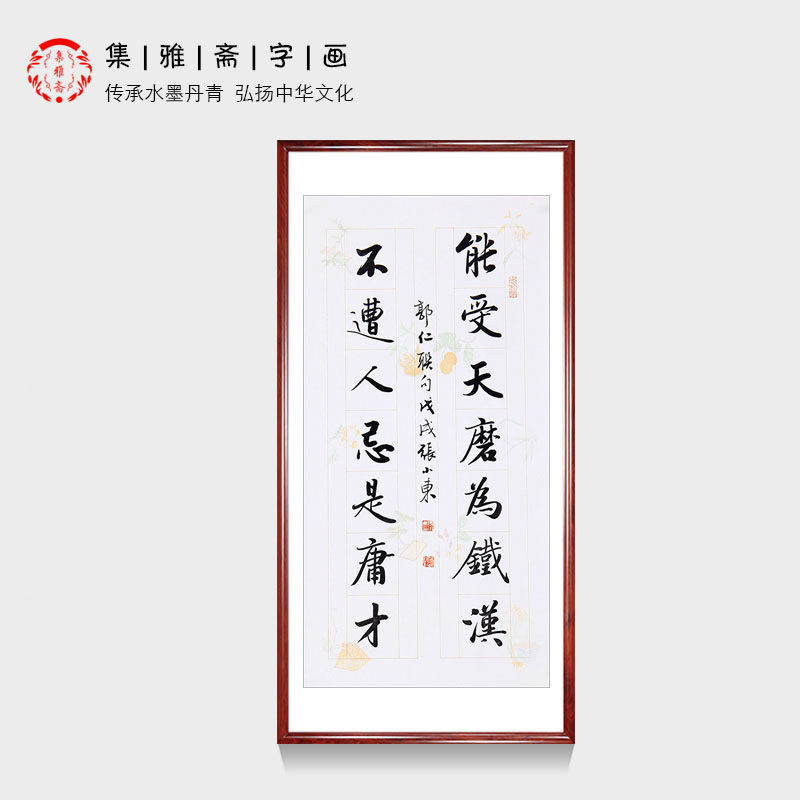 集|雅|斋|字|画
传承水墨丹青 弘扬中华文化
集雅斋
能受天磨為鐵漢
不遭人忌是庸才
郭仁联句戊戌張小東